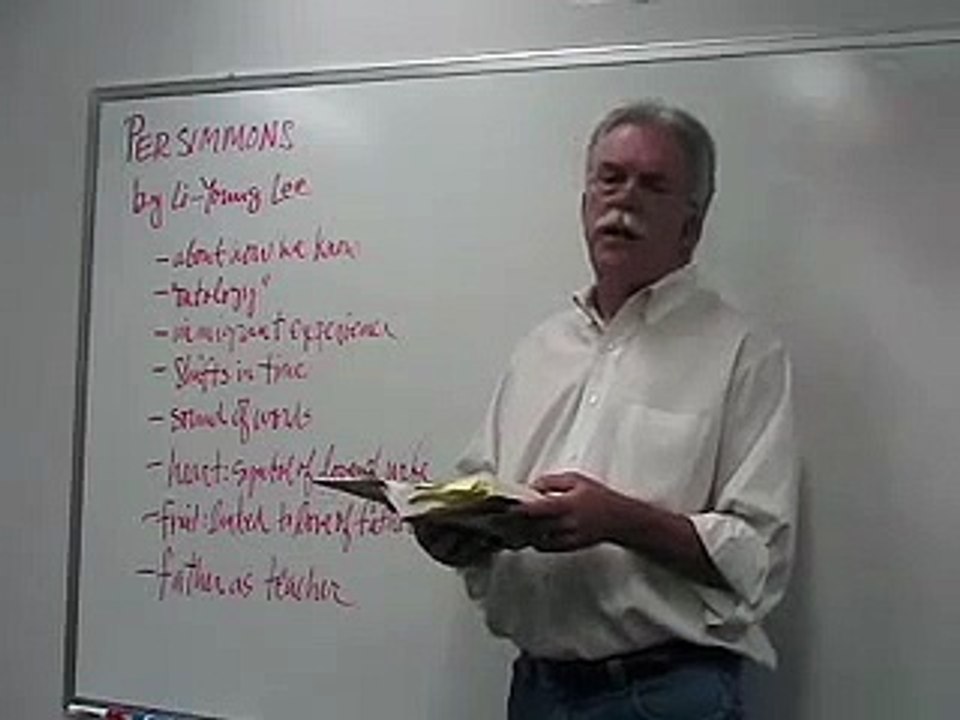 PERSIMMONS
by Li-Young Lee
- about how we know
- immigrant experience
- Shifts in time
- sound of words
- heart: symbol of
- fruit: linked to love of father
- father as teacher